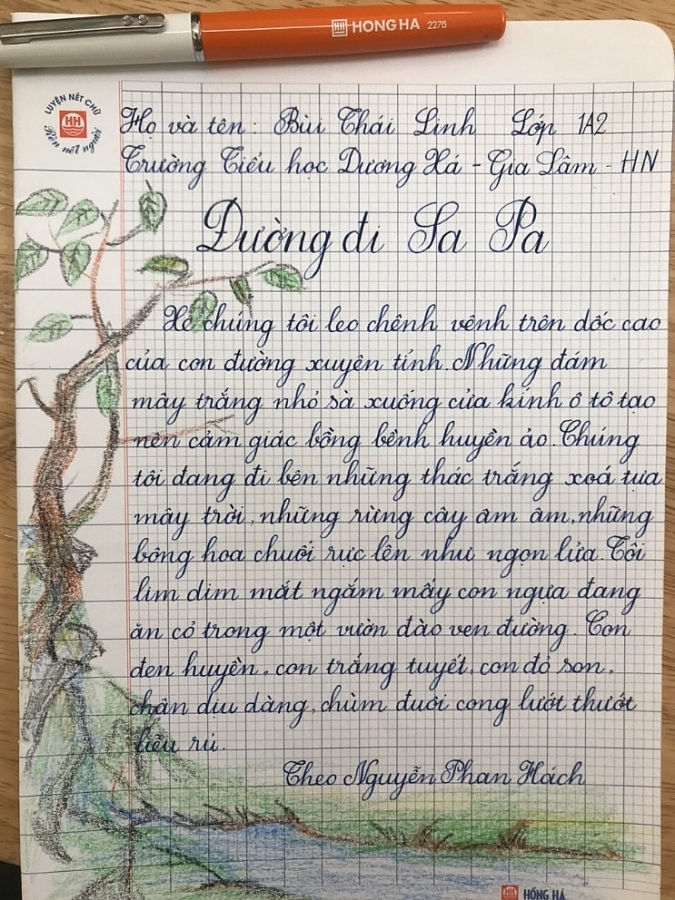 HH HONG HA 2275
LUYỆN NÉT CHỮ
HH
Rèn nết người
Họ và tên: Bùi Thái Linh Lớp 1A2
Trường Tiểu học Dương Xá - Gia Lâm - HN
Đường đi Sa Pa
Xe chúng tôi leo chênh vênh trên dốc cao
của con đường xuyên tỉnh. Những đám
mây trắng nhỏ sà xuống cửa kính ô tô tạo
nên cảm giác bồng bềnh huyền ảo. Chúng
tôi đang đi bên những thác trắng xoá tựa
mây trời, những rừng cây âm âm, những
bông hoa chuối rực lên như ngọn lửa. Tôi
lim dim mắt ngắm mấy con ngựa đang
ăn cỏ trong một vườn đào ven đường. Con
đen huyền, con trắng tuyết, con đỏ son,
chân dịu dàng, chùm đuôi cong lướt thướt
liễu rủ.
Theo Nguyễn Phan Hách
HH HỒNG HÀ